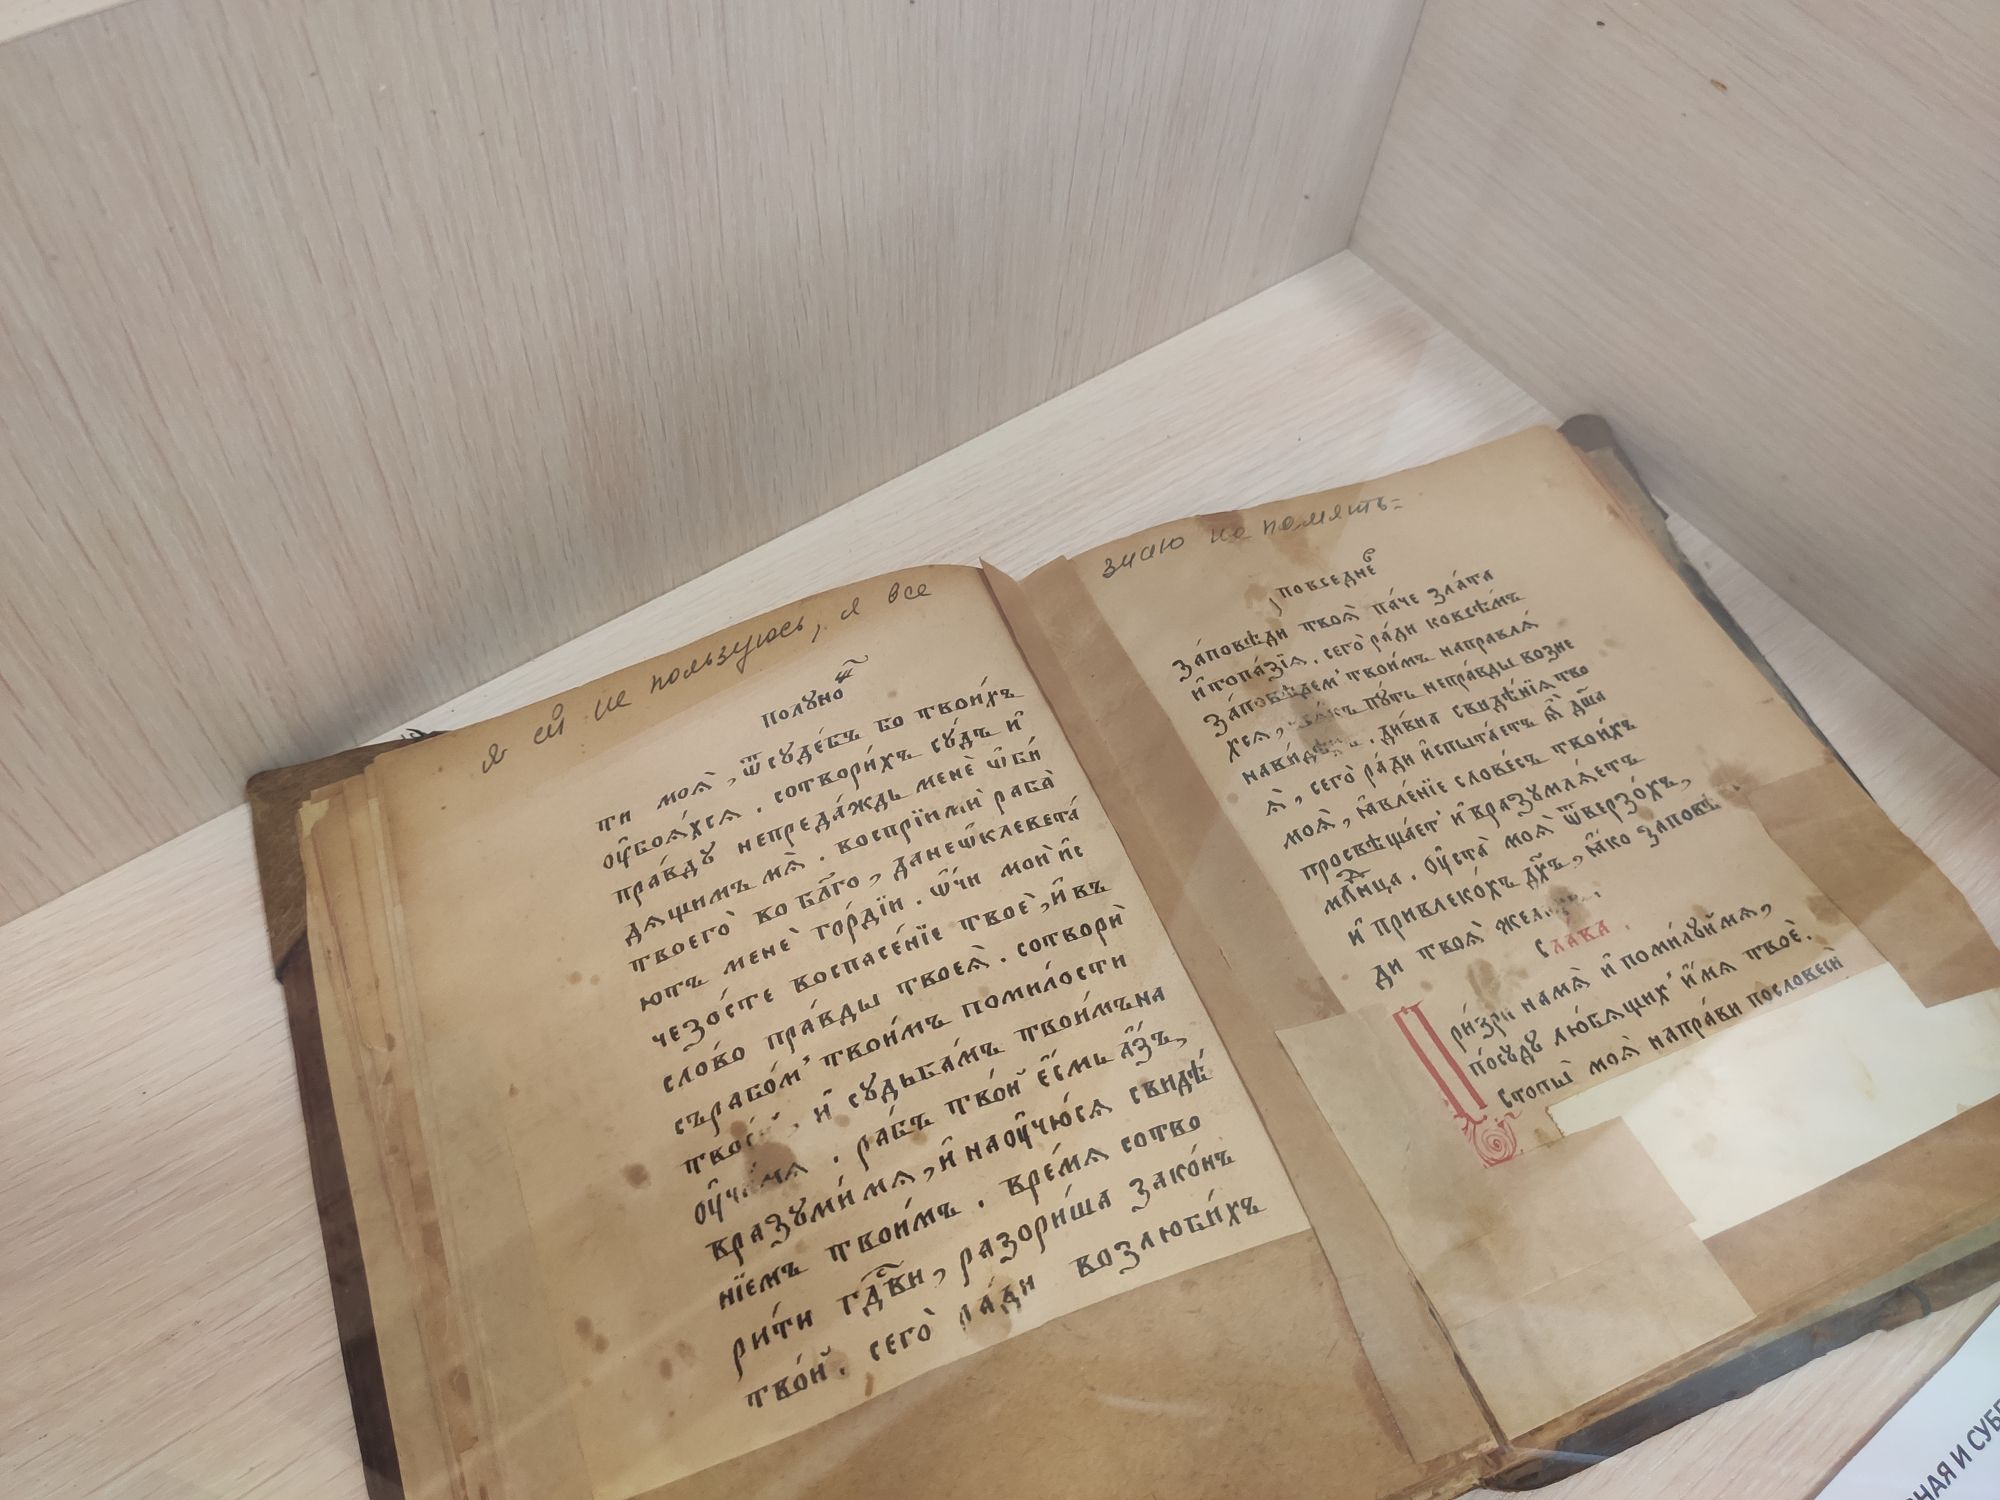 я ей не пользуюсь, я все
полꙋно́щ
ти моѧ̀, ѿсꙋде́бъ бо твои́хъ
ᲂу҆боѧ́хсѧ. сотвори́хъ сꙋ́дъ и҆
пра́вдꙋ непреда́ждь менѐ ѡ҆би́
дѧщимъ мѧ̀. воспрїимѝ раба̀
твоего̀ во бл҃го, данеѡ҆клевета́
ютъ менѐ го́рдїи. ѡ҆́чи мои̑ и҆с
чезо́сте воспасе́нїе твоѐ, и҆ въ
сло́во пра́вды твоеѧ̀. сотворѝ
сърабо́м твои́мъ поми́лости
и҆ сꙋдьба́мъ твои́мъ на
. ра́бъ тво́й є҆́смь а҆́зъ,
вразꙋми́ мѧ, и҆ наᲂу҆чю́сѧ свидѣ́
нїемъ твои́мъ. вре́мѧ сотво
ри́ти гдⷭ҇ви, разори́ша зако́нъ
тво́й. сего̀ ра́ди возлюби́хъ
знаю на память=
повседне́в
за́повѣди твоѧ̀ па́че зла́та
и҆ топа́зїѧ. сего̀ ра́ди ковсѣ́мъ
за́повѣдем твои́мъ направлѧ́
хсѧ, пꙋ́ть непра́вды возне
. ди́вна свидѣ́нїѧ тво
ѧ̀, сего̀ ра́ди и҆спыта́етъ ѧ҆̀ дш҃а
моѧ̀, ꙗ҆вле́нїе слове́съ твои́хъ
просвѣща́ет и҆ вразꙋмлѧ́етъ
млⷣнца. ᲂу҆ста̀ моѧ̀ ѿверзо́хъ,
и҆ привлеко́хъ дх҃ъ, ꙗ҆́ко заповѣ
ди твоѧ̀
сла́ва.
При́зри намѧ̀ и҆ поми́лꙋймѧ,
посꙋдꙋ̀ лю́бѧщих и҆́мѧ твоѐ.
стопы̀ моѧ̀ напра́ви пословесѝ